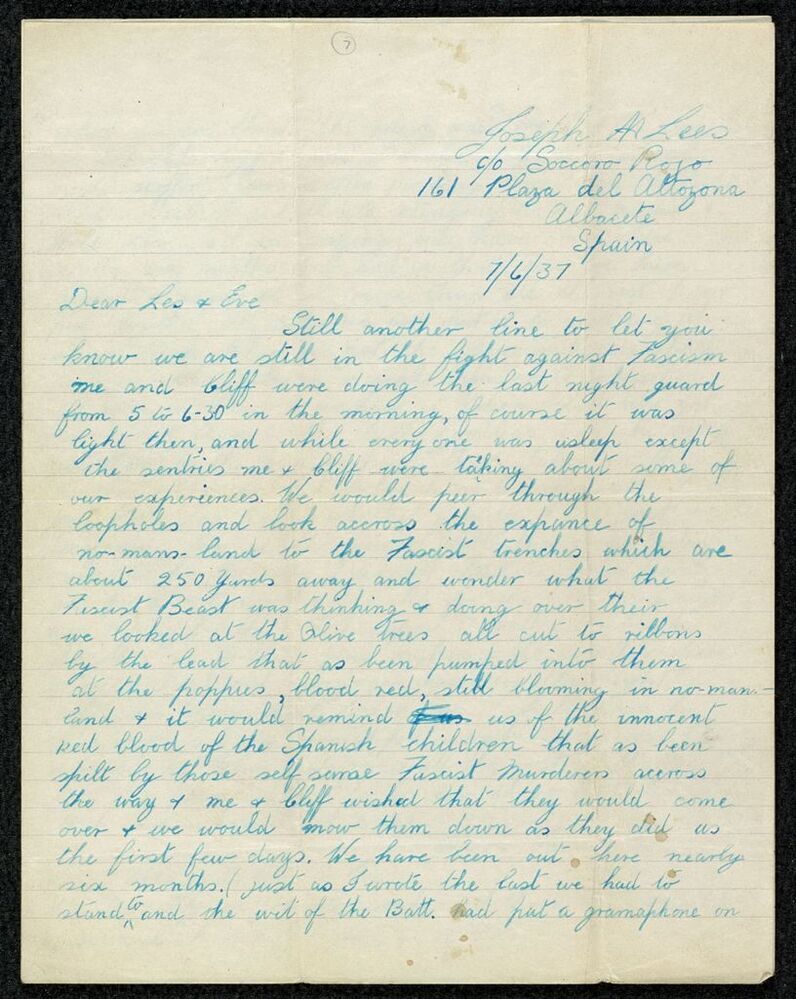 7
Joseph A Lees
c/o Soccoro Rojo
161 Plaza del Altozona
Albacete
Spain
7/6/37
Dear Les & Eve
Still another line to let you
know we are still in the fight against Fascism
me and Cliff were doing the last night guard
from 5 to 6-30 in the morning, of course it was
light then, and while every one was asleep except
the sentries me & Cliff were talking about some of
our experiences. We would peer through the
loopholes and look accross the expance of
no-mans-land to the Fascist trenches which are
about 250 yards away and wonder what the
Fascist Beast was thinking & doing over their
we looked at the Olive trees all cut to ribbons
by the lead that as been pumped into them
at the poppies, blood red, still blooming in no-man-
land & it would remind us of the innocent
red blood of the Spanish children that as been
spilt by those self same Fascist Murderers accross
the way & me & Cliff wished that they would come
over & we would mow them down as they did us
the first few days. We have been out here nearly
six months. (just as I wrote the last we had to
stand to and the wit of the Batt. had put a gramaphone on